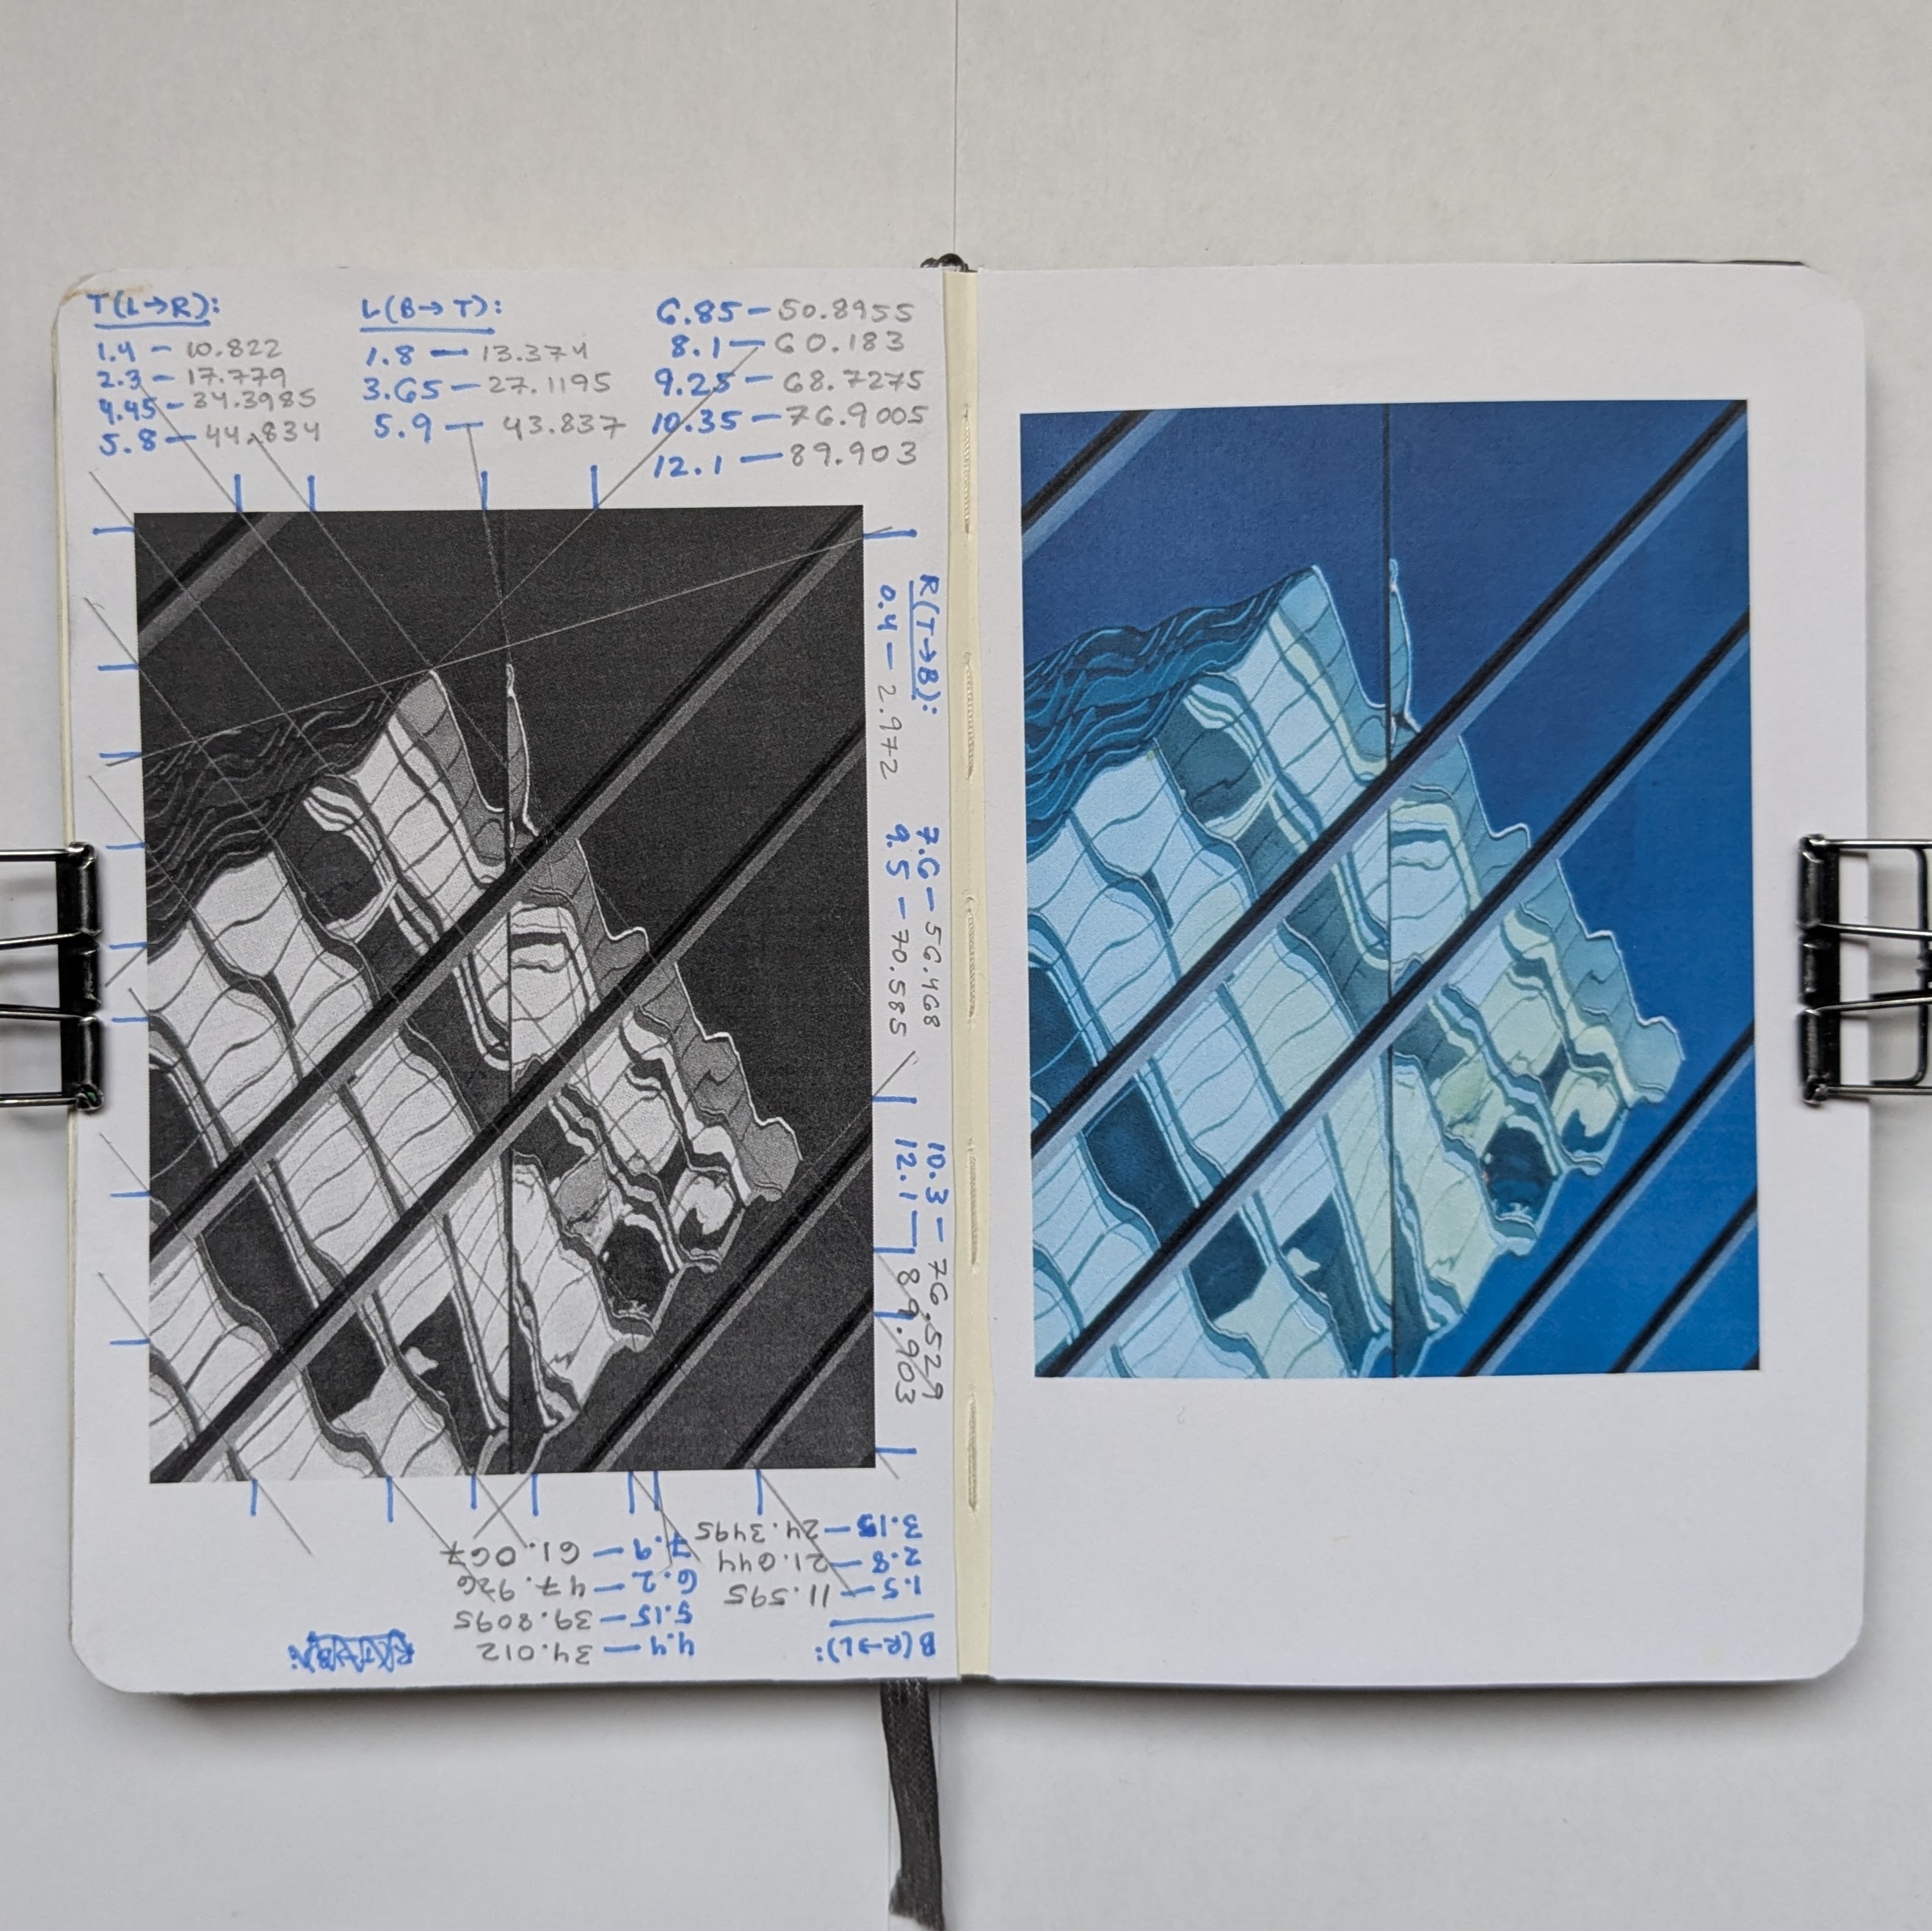 T(L→R):
1.4 — 10.822
2.3 — 17.779
4.45 - 34.3985
5.8 — 44.834
L(B→T):
1.8 — 13.374
3.65 — 27.1195
5.9 — 43.837
6.85 — 50.8955
8.1 — 60.183
9.25 — 68.7275
10.35 — 76.9005
12.1 — 89.903
R(T→B):
0.4 — 2.972
7.6 — 56.468
9.5 — 70.585
10.3 — 76.529
12.1 — 89.903
B(R→L):
1.5 — 11.595
2.8 — 21.644
3.15 — 24.3495
4.4 — 34.012
5.15 — 39.8095
6.2 — 47.926
7.9 — 61.067